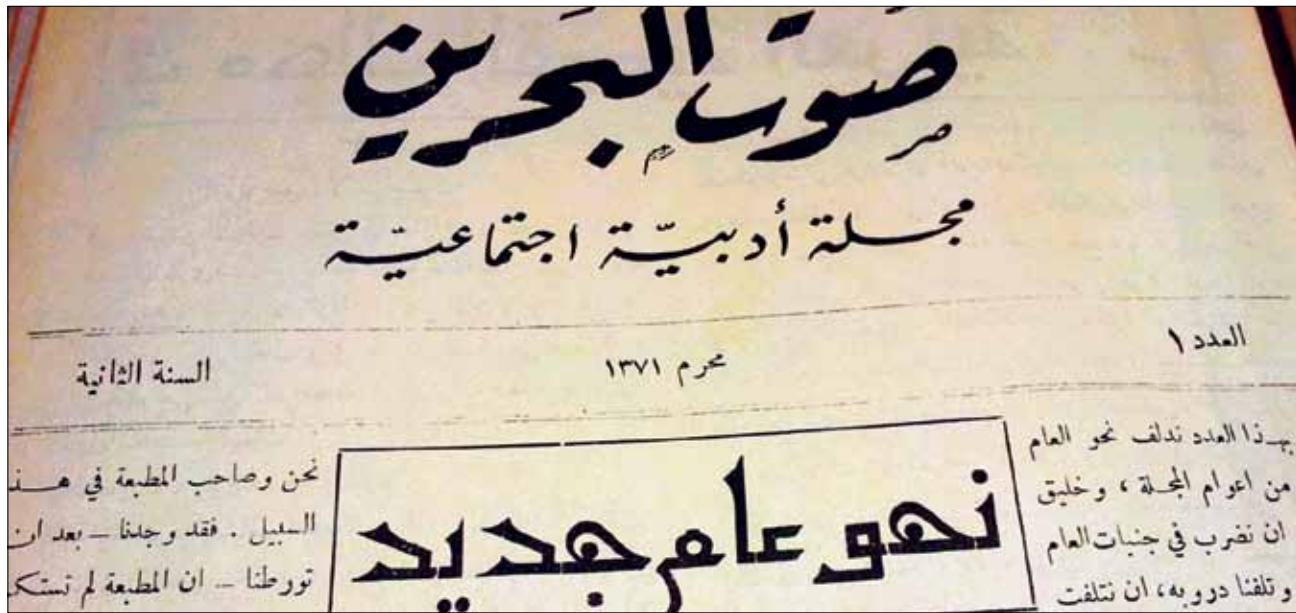 صوت البحرين
مجلة أدبيّة اجتماعيّة
العدد ١
محرم ١٣٧١
السنة الثانية
بهذا العدد ندلف نحو العام
من اعوام المجلة ، وخليق
ان نضرب في جنبات العام
وتلفنا دروبه، ان نتلفت
نحو عام جديد
نحن وصاحب المطبعة في هـــذ
السبيل . فقد وجدنا – بعد ان
تورطنا – ان المطبعة لم تستكـ